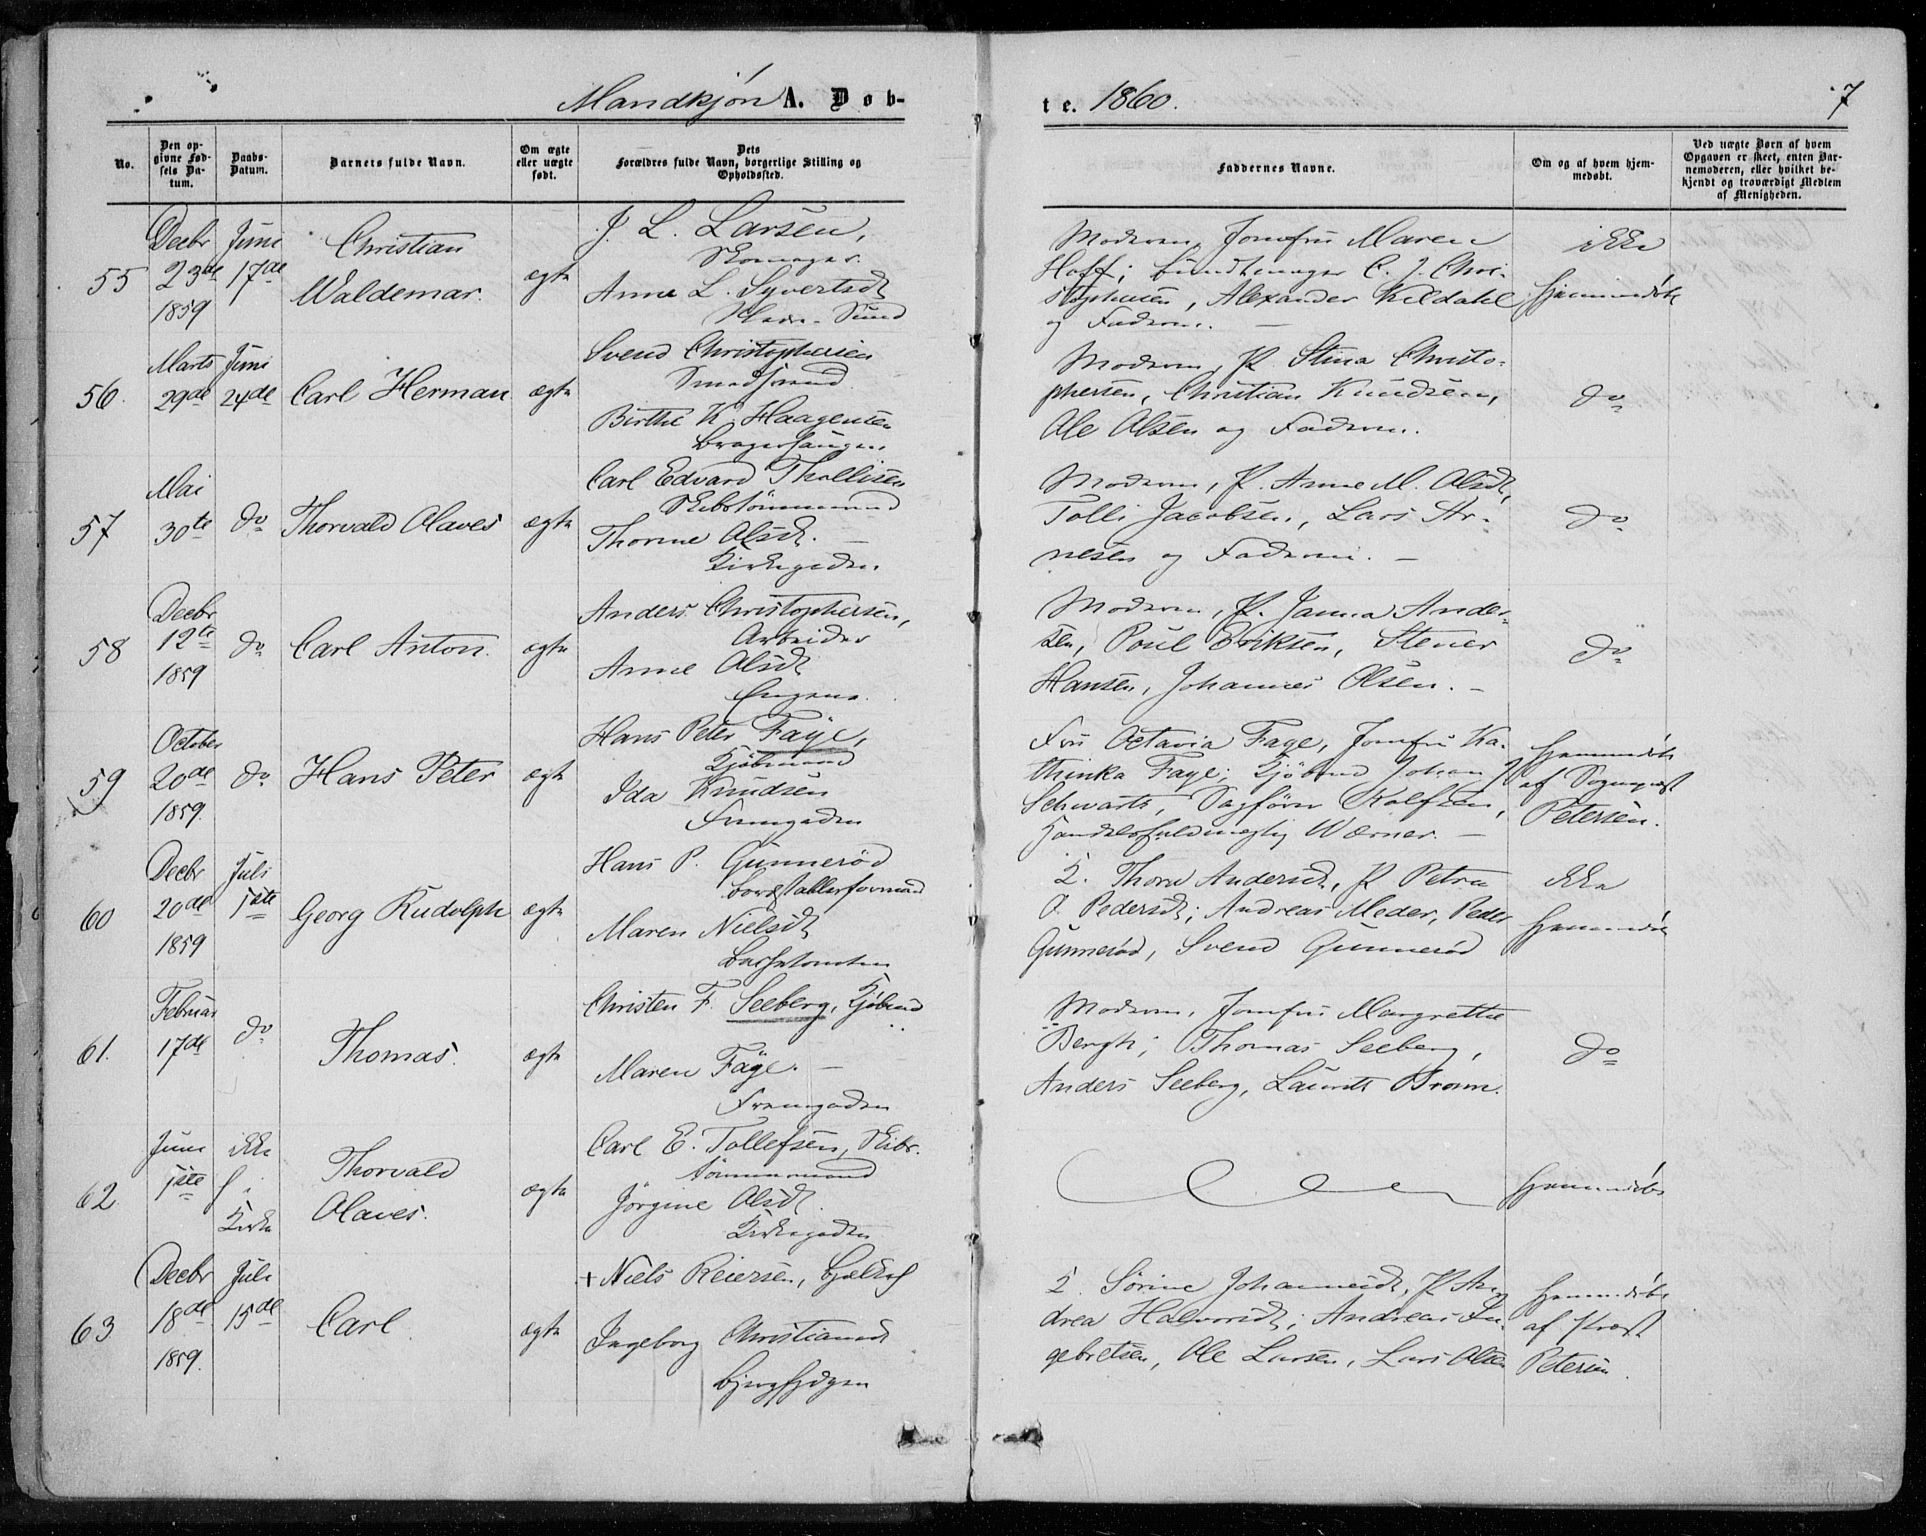 Mandkjøn A. Døb-
te. 1860.
7
No.
Den op-
givne Fød-
sels Da-
tum.
Daabs-
Datum.
Barnets fulde Navn.
Om ægte
eller uægte
født.
Dets
Forældres fulde Navn, borgerlige Stilling og
Opholdssted.
Faddernes Navne.
Om og af hvem hjem-
medøbt.
Ved uægte Børn af hvem
Opgaven er skeet, enten Bar-
nemoderen, eller hvilket be-
kjendt og troværdigt Medlem
af Menigheden.
55
Decbr
23de
1859
Juni
17de
Christian
Waldemar.
ægte
J. L. Larsen,
Skomager.
Anne L. Syvertsdt
Sund
Moderen, Jomfru Maren
Hoff; C. J. Chri-
stophersen, Alexander Kildahl
og Faderen.
ikke
hjemmedøbt
56.
Marts
29de
Juni
24de
Carl Herman
ægte
Svend Christophersen
Smedsvend
Birthe K. Haagensen
Moderen, P. Stina Christo-
phersen, Christian Knudsen,
Ole Olsen og Faderen.
do
57
Mai
30te
do
Thorvald Olaves
ægte
Carl Edvard Thollisen
Skibstømmermand
Thorine Olsdt.
Kirkegaden.
Moderen, P. Anne M. Olsdt,
Tolli Jacobsen, Lars Ar-
nesen og Faderen.
do
58
Decbr
12te
1859
do
Carl Anton.
ægte
Anders Christophersen,
Arbeider
Anne Olsdt
Engene.
Moderen, P. Janna Ander-
sen, Poul Eriksen, Stener
Hansen, Johannes Olsen.
do
59
October
20de
1859.
do
Hans Peter
ægte
Hans Peter Faye,
Kjøbmand
Ida Knudsen
Fremgaden
Fru Octavia Faye, Jomfru Ka-
thinka Faye; Kjøbmd Johan
Schwartz, Sagfører Rolfsen,
Handelsfuldmægtig Wærner.
hjemmedøbt
af Sognepræst
Petersen.
60
Decbr
20de
1859
Juli
1ste
Georg Rudolph
ægte
Hans P. Gunnerød
Maren Nielsdt
K. Thora Andersdt, P Petra
O. Pedersdt; Andreas Meder, Peder
Gunnerød, Svend Gunnerød
ikke
hjemmedøbt
61.
Februar
17de
do
Thomas.
ægte
Christen F. Seeberg, Kjøbmd
Maren Faye.
Fremgaden
Moderen, Jomfru Margrethe
Bergh; Thomas Seeberg,
Anders Seeberg, Laurits Broun.
do
62
Juni
1ste
ikke
i
Kirke
Thorvald
Olaves.
ægte
Carl E. Tollefsen, Skibs-
tømmermand
Jørgine Olsdt.
Kirkegaden
hjemmedøbt
63
Decbr
18de
1859.
Juli
15de
Carl
ægte
+ Niels Reiersen,
Ingeborg Christiansdt
K. Sørine Johannesdt, P. An-
drea Halvorsdt; Andreas In-
gebretsen, Ole Larsen, Lars Olsen
hjemmedøbt
af Præst
Petersen